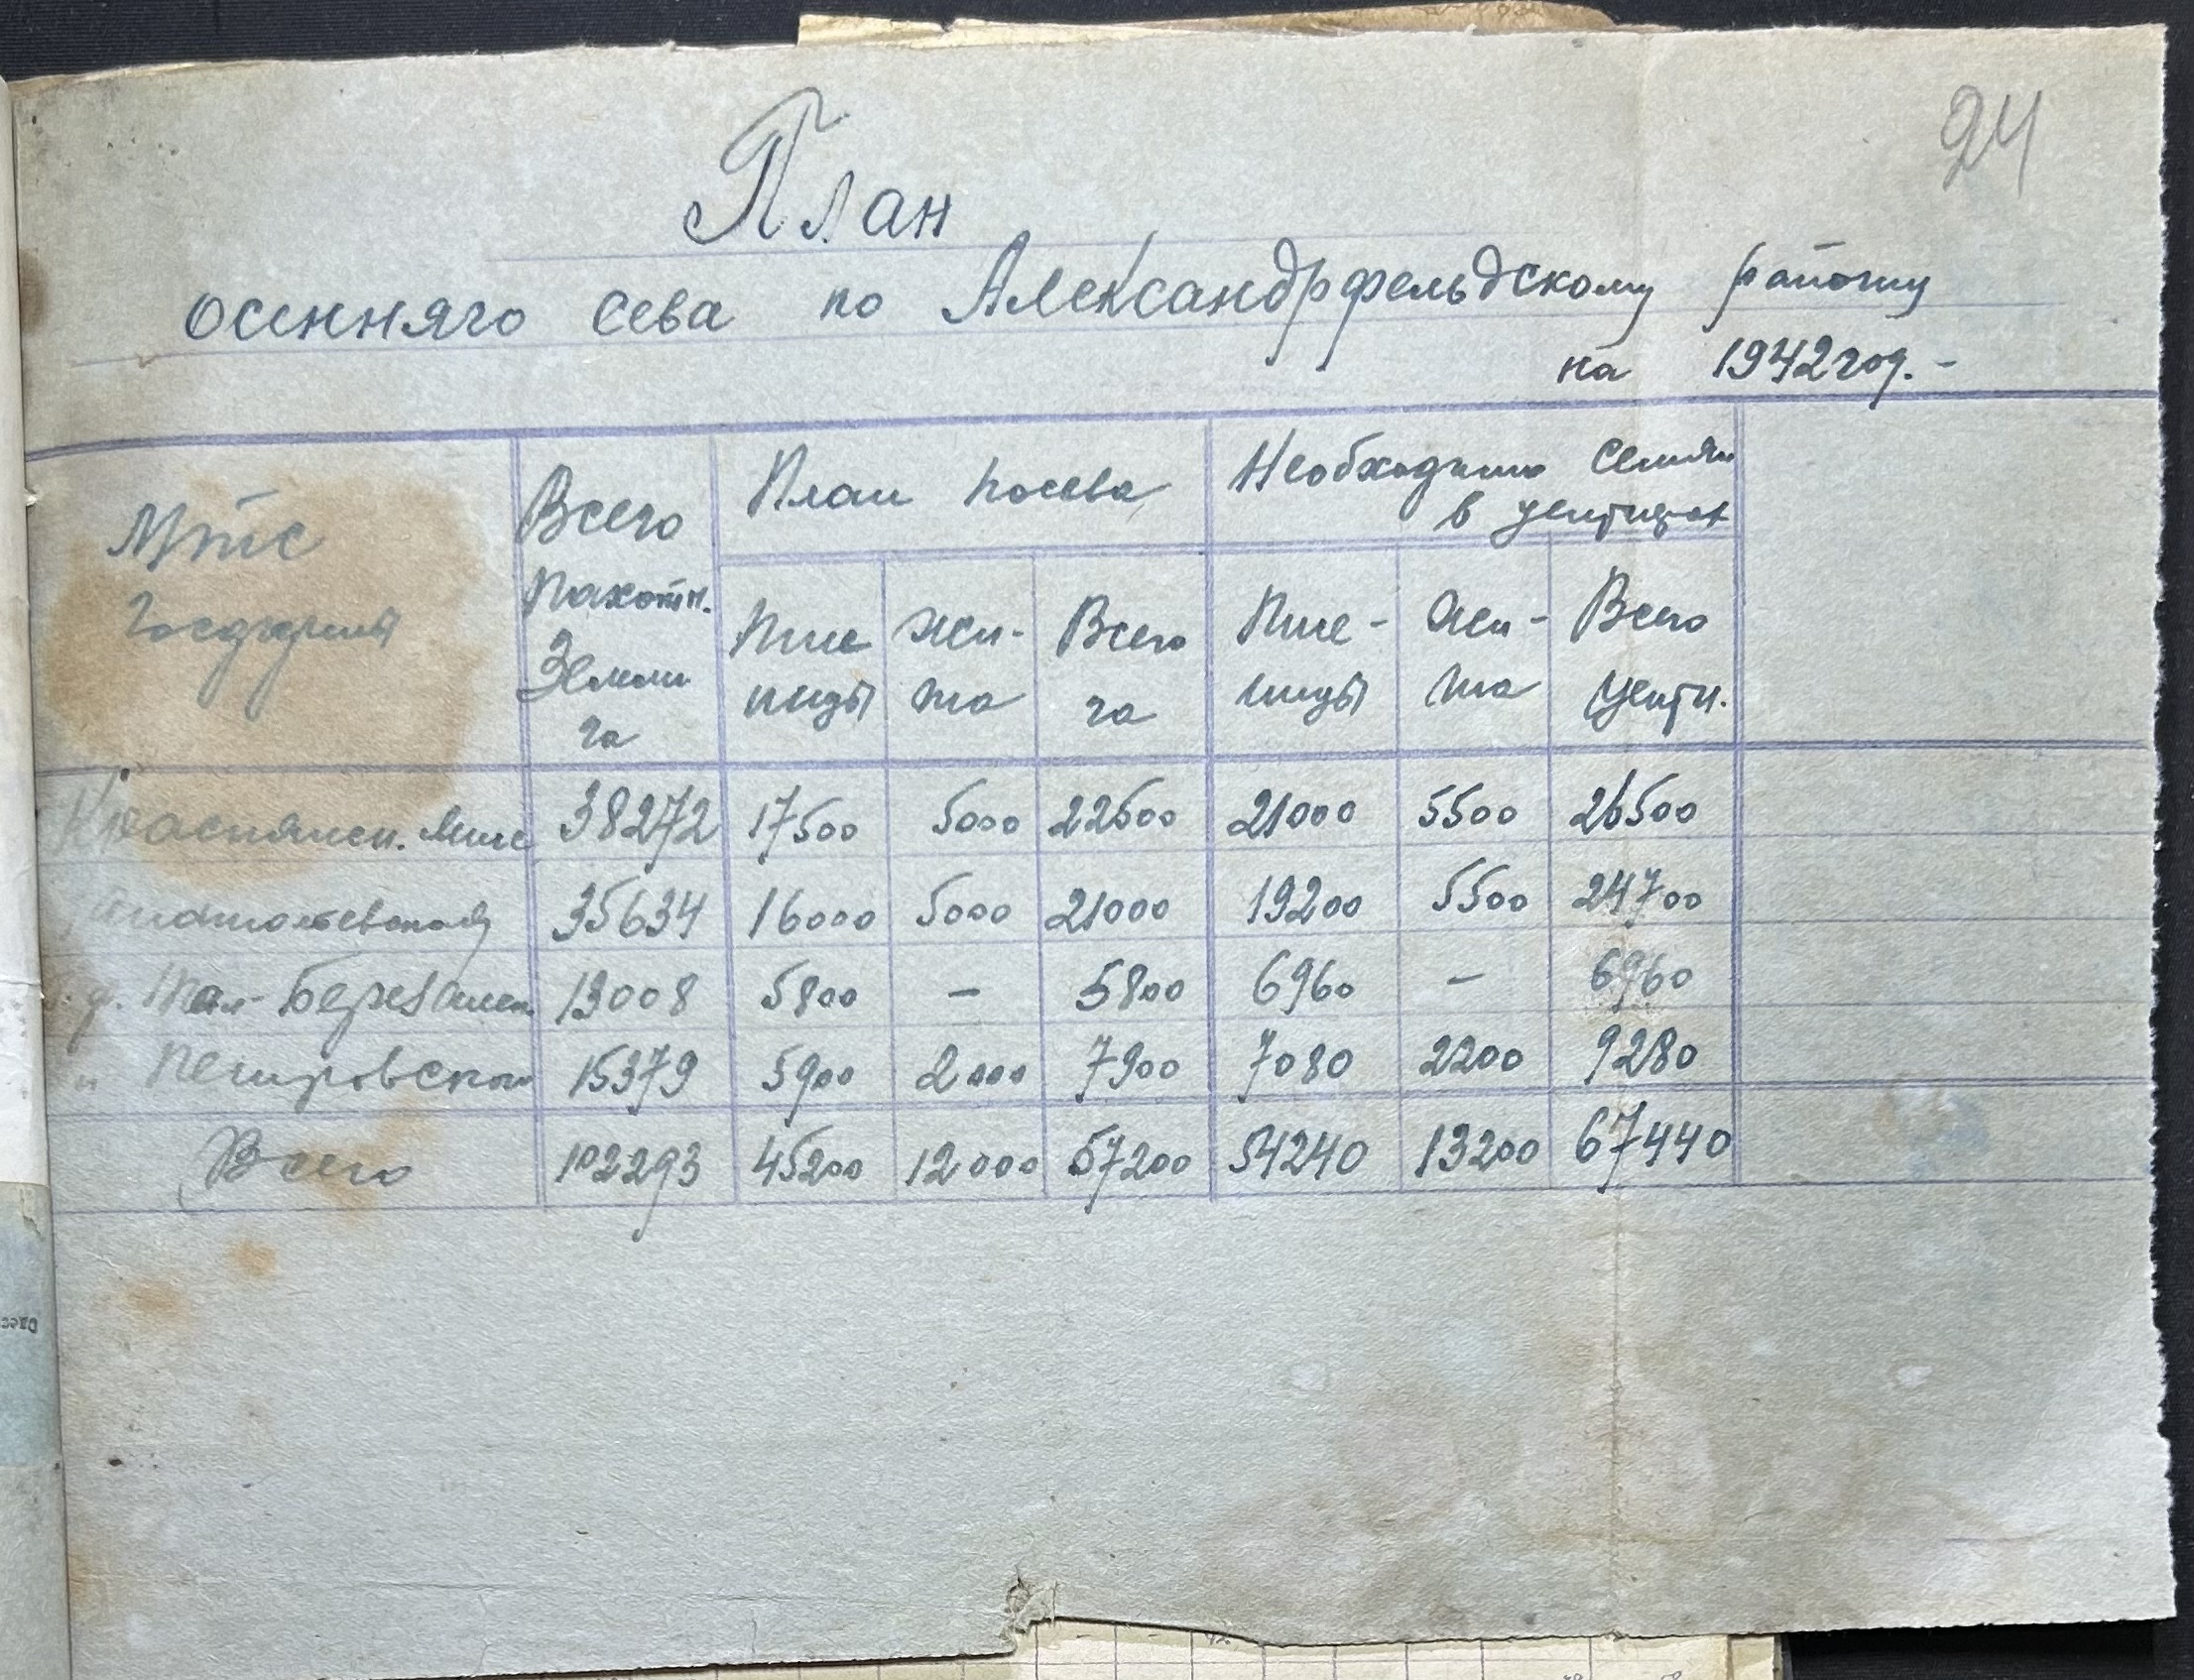 24
План
осенняго сева по Александрфельдскому району
на 1942 год. -
Мтс Всего План посева Необходимо семян
в центнерах
Госхозы Пахотн. Пше Жи- Всего Пше- Жи- Всего
Земли ницы та га ницы та центн.
га
Мтс 38272 17500 5000 22500 21000 5500 26500
35634 16000 5000 21000 19200 5500 24700
13008 5800 - 5800 6960 - 6960
Петровском 15379 5900 2000 7900 7080 2200 9280
Всего 102293 45200 12000 57200 54240 13200 67440